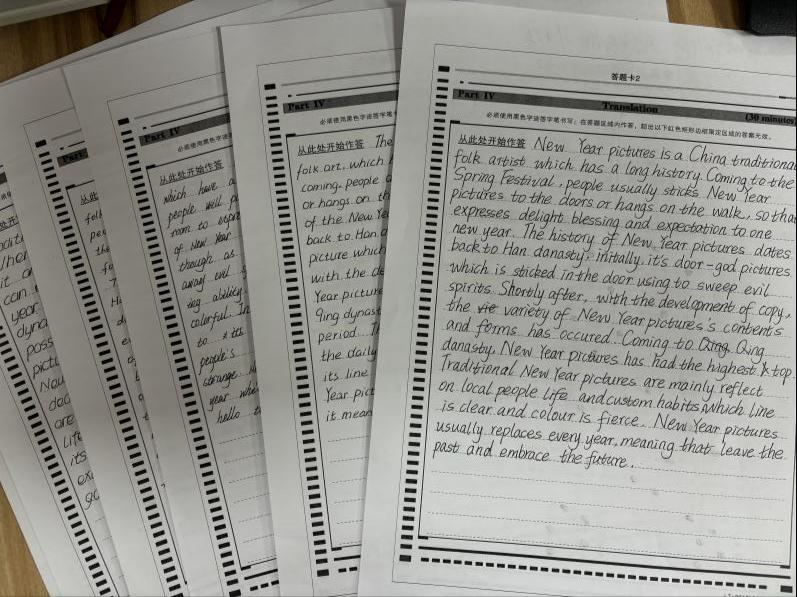 答题卡2
Part IV Translation (30 minutes)
必须使用黑色字迹签字笔书写，在答题区域内作答，超出以下红色矩形边框限定区域的答案无效。
从此处开始作答 New Year pictures is a China traditional
folk artist which has a long history. Coming to the
Spring Festival, people usually sticks New Year
pictures to the doors or hangs on the walk, so that
expresses delight blessing and expectation to one
new year. The history of New Year pictures dates
back to Han danasty, initally. it's door-god pictures
which is sticked in the door using to sweep evil
spirits. Shortly after, with the development of copy,
the variety of New Year pictures's contents
and forms has occured. Coming to Qing
danasty, New Year pictures has had the highest top.
Traditional New Year pictures are mainly reflect
on local people life and custom habits, which line
is clear and colour is fierce. New Year pictures
usually replaces every year, meaning that leave the
past and embrace the future.
Part IV
必须使用黑色字迹签字笔
从此处开始作答 The
folk art, which
coming, people
or hangs on th
of the New Ye
back to Han d
picture which
with the de
Year picture
Qing dynast
period. T
the daily
its line
Year pict
it mean
Part IV
从此处开始作答
which have a
people well p
room to expr
of New Year
though as
away evil s
ing ability
colorful. In
to
people's
strange
year whe
hello t
Part
folk
peo
the